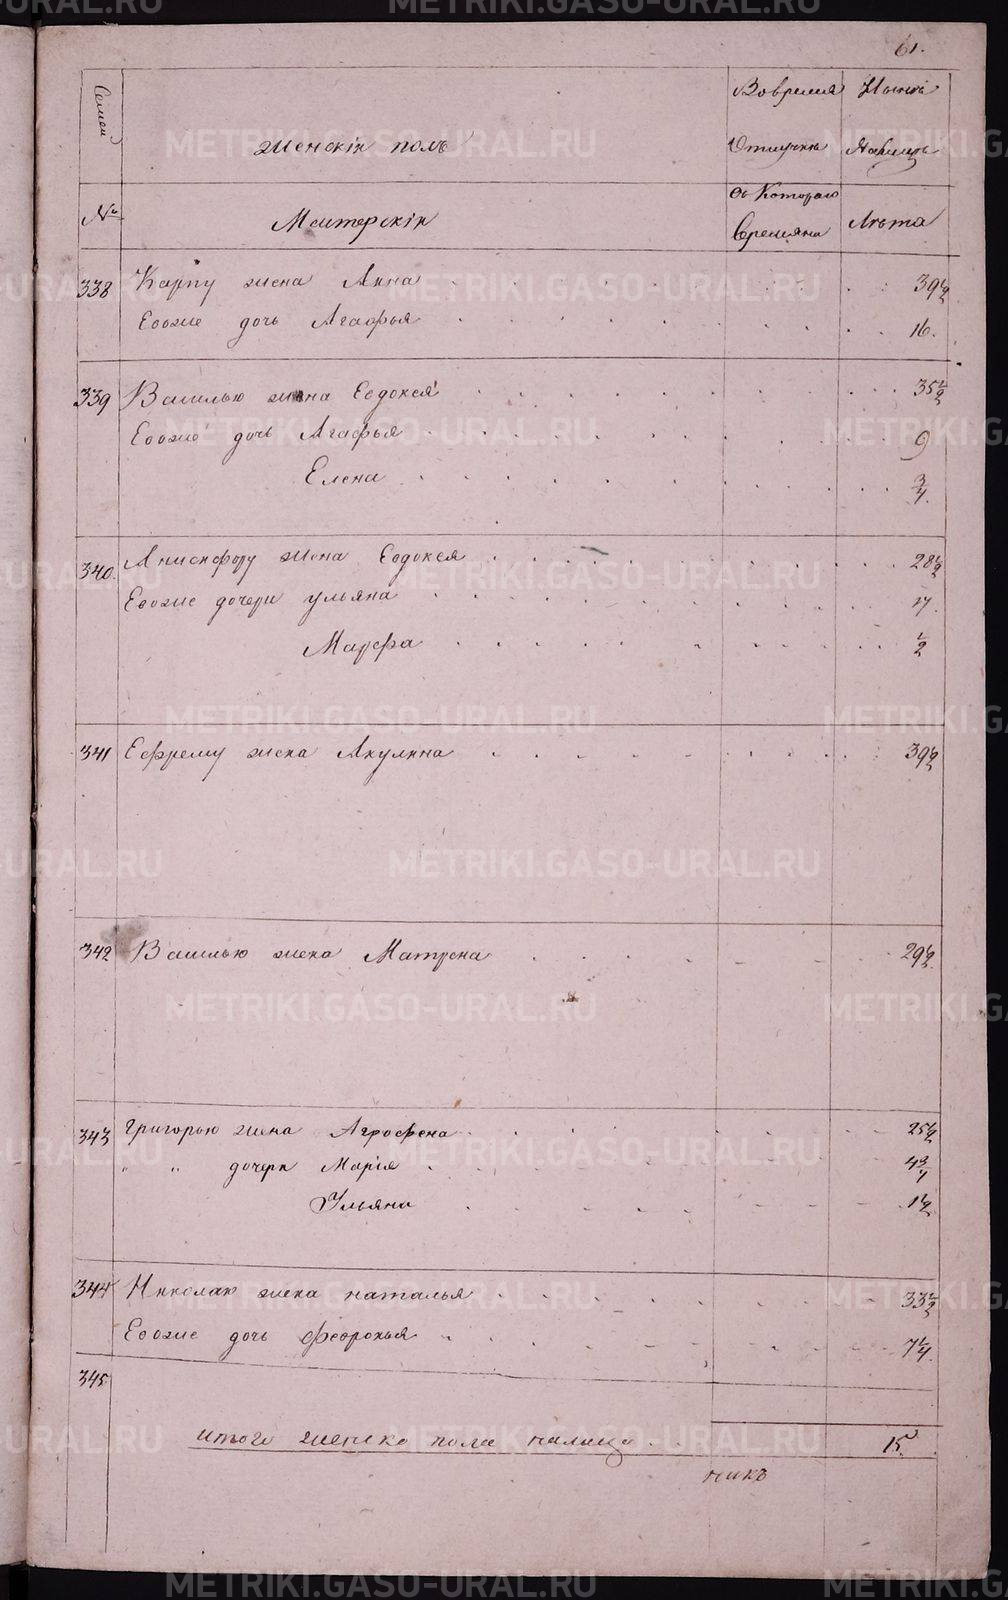 61.
Семеи
Женскiи полъ
Вовремя
Отлучкѣ
Нынѣ
Налицѣ
№
Мастерскiи
Съ Котораго
Времяни
Лѣта
338 Карпу жена Анна 39 1/2
Евоже дочь Агафья 16.
339 Василью жена Евдокея 35 1/2
Евоже дочь Агафья 9
Елена 3/4
340. Анисифору жена Евдокея 28 1/2
Евоже дочери ульяна 4.
Марфа 1/2
341 Ефрему жена Акулина 39 1/2
342 Василью жена Матрена 29 1/2
343 Григорью жена Агрофена 25 1/2
" " дочери Марiя 4 3/4
Ульяна 1 1/2
344 Николаю жена наталья 33 1/2
Евоже дочь Феоронья 7 1/4
345
итого женско пола налицо 15.
никъ
METRIKI.GASO-URAL.RU